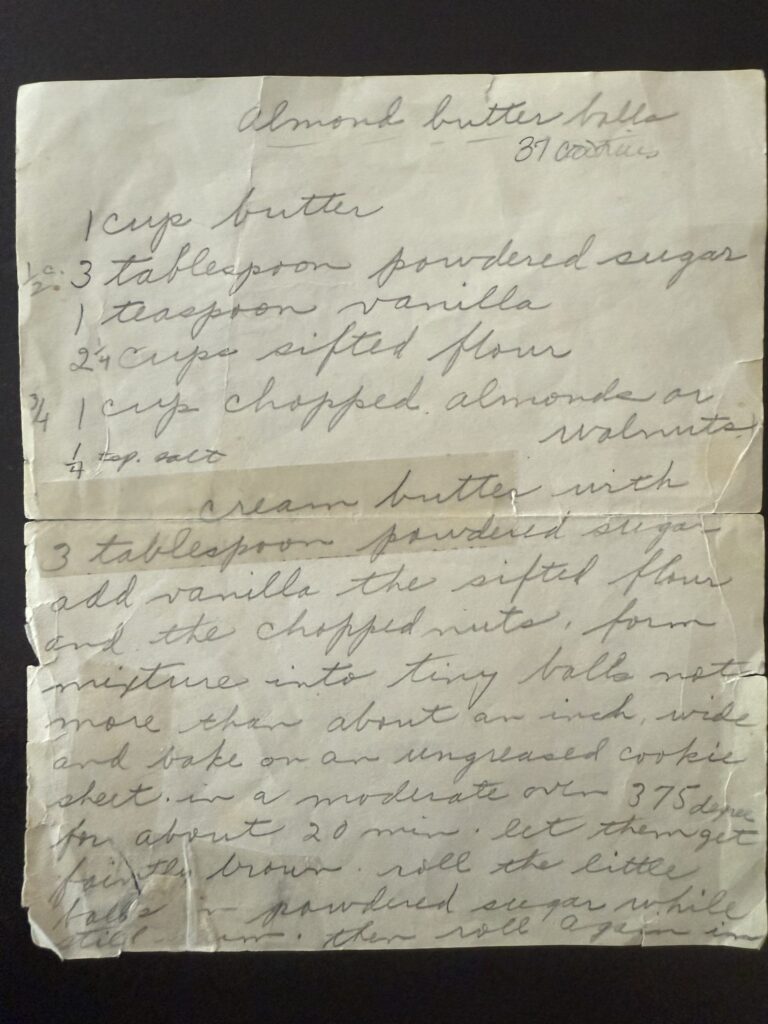 Almond butter balls
37 cookies
1 cup butter
1/2 c. 3 tablespoon powdered sugar
1 teaspoon vanilla
2 1/4 cups sifted flour
3/4 1 cup chopped almonds or
walnuts
1/4 tsp. salt
cream butter with
3 tablespoon powdered sugar
add vanilla the sifted flour
and the chopped nuts. form
mixture into tiny balls not
more than about an inch wide
and bake on an ungreased cookie
sheet. in a moderate oven 375 degree
for about 20 min. let them get
faintly brown. roll the little
balls in powdered sugar while
still warm. then roll again in